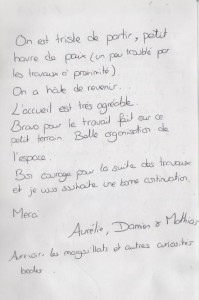 On est triste de partir, petit
havre de paix (un peu troublé par
les travaux à proximité).
On a hâte de revenir.
L'accueil est très agréable.
Bravo pour le travail fait sur ce
petit terrain. Belle organisation de
l'espace.
Bon courage pour la suite des travaux
et je vous souhaite une bonne continuation.
Merci
Aurélie, Damien & Mathias
les margouillats et autres curiosités